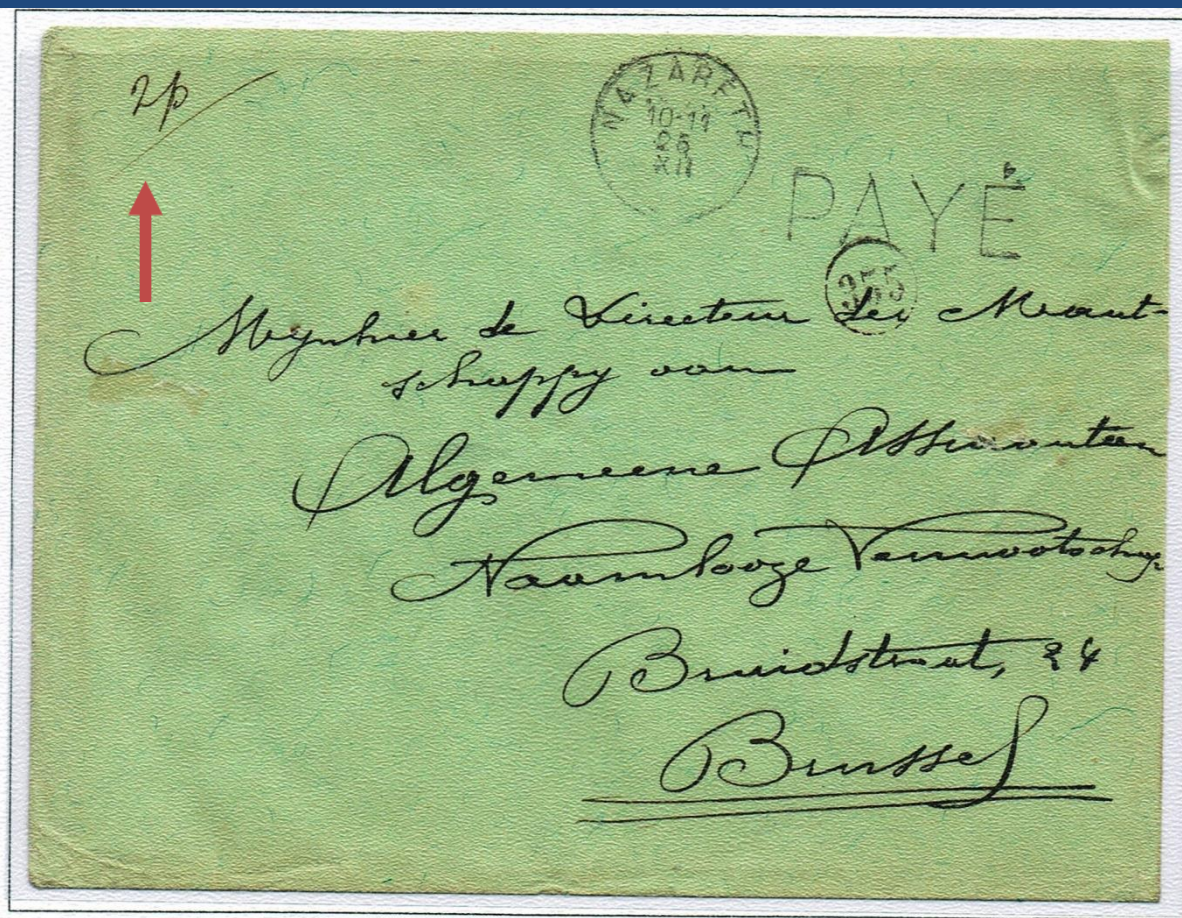 2p
NAZARETH
10-11
25
XII
PAYÉ
355
Mynheer de Directeur der Maat-
schappy van
Algemeene Assurantien
Naamlooze Vennootschap
Bruidstraat, 24
Brussel